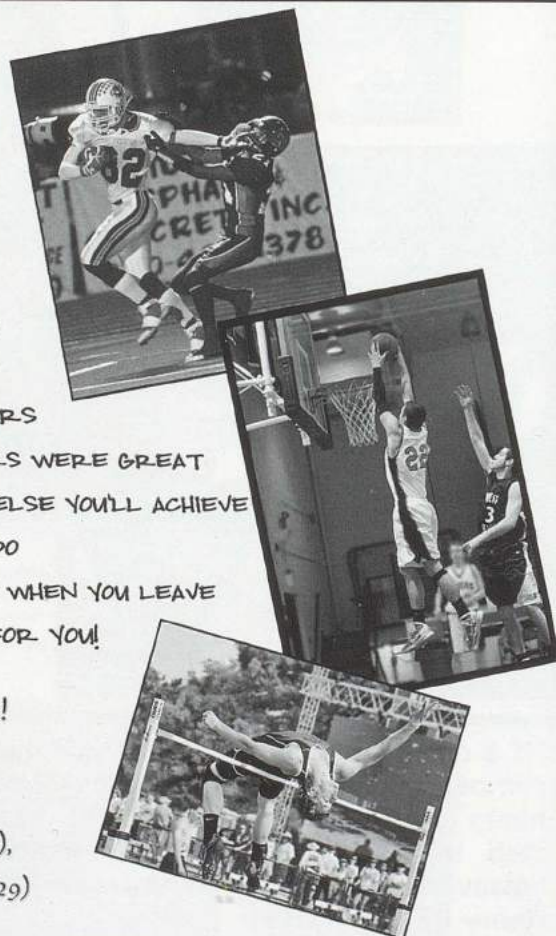 82
PHA &
CRET INC.
378
22
3
RS
LS WERE GREAT
ELSE YOU'LL ACHIEVE
DO
WHEN YOU LEAVE
FOR YOU!
!
),
29)